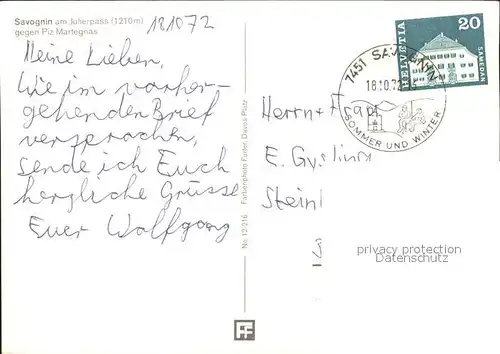 Savognin am Julierpass (1210m)
gegen Piz Martegnas
181072
Meine Lieben,
Wie im vorher-
gehenden Brief
versprochen,
sende ich Euch
herzliche Grüsse
Euer Wolfgang
No. 12 216 Farbenphoto Furter, Davos Platz
FF
HELVETIA
20
SAMEDAN
7451 SAVOGNIN
18.10.72
SOMMER UND WINTER
Herrn + Frau
E.
privacy protection
Datenschutz